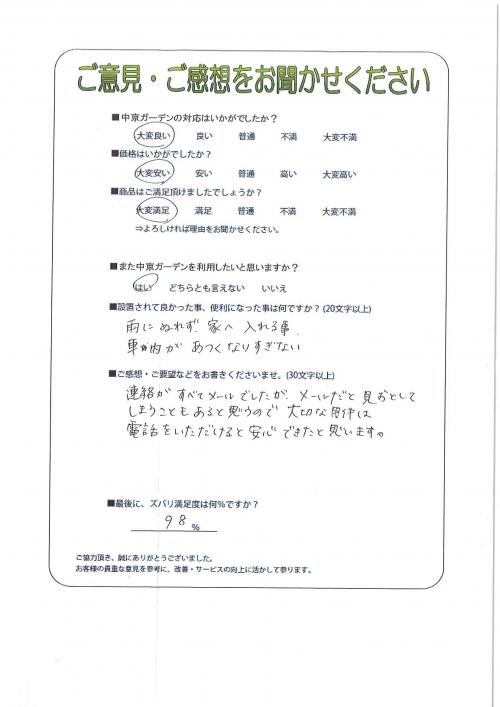 ご意見・ご感想をお聞かせください
■中京ガーデンの対応はいかがでしたか？
大変良い 良い 普通 不満 大変不満
■価格はいかがでしたか？
大変安い 安い 普通 高い 大変高い
■商品はご満足頂けましたでしょうか？
大変満足 満足 普通 不満 大変不満
⇒よろしければ理由をお聞かせください。
■また中京ガーデンを利用したいと思いますか？
はい どちらとも言えない いいえ
■設置されて良かった事、便利になった事は何ですか？(20文字以上)
雨にぬれず、家へ入れる事、
車内があつくなりすぎない
■ご感想・ご要望などをお書きくださいませ。(30文字以上)
連絡がすべてメールでしたが、メールだと見おとして
しまうこともあると思うので大切な用件は
電話をいただけると安心できたと思います。
■最後に、ズバリ満足度は何%ですか？
98%
ご協力頂き、誠にありがとうございました。
お客様の貴重な意見を参考に、改善・サービスの向上に活かして参ります。